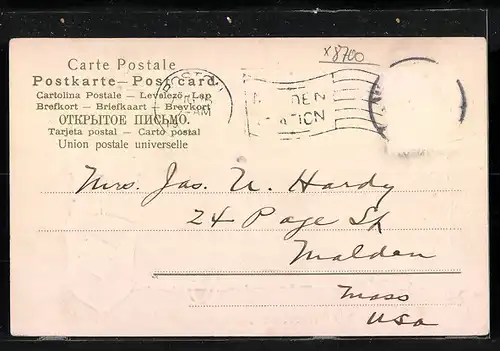 x8700
Carte Postale
Postkarte – Post card
Cartolina Postale – Levelező-Lap
Brefkort – Briefkaart – Brevkort
ОТКРЫТОЕ ПИСЬМО.
Tarjeta postal – Carto postal
Union postale universelle
BOSTON
STATION
Mrs. Jas. W. Hardy
24 Page St
Malden
Mass
USA